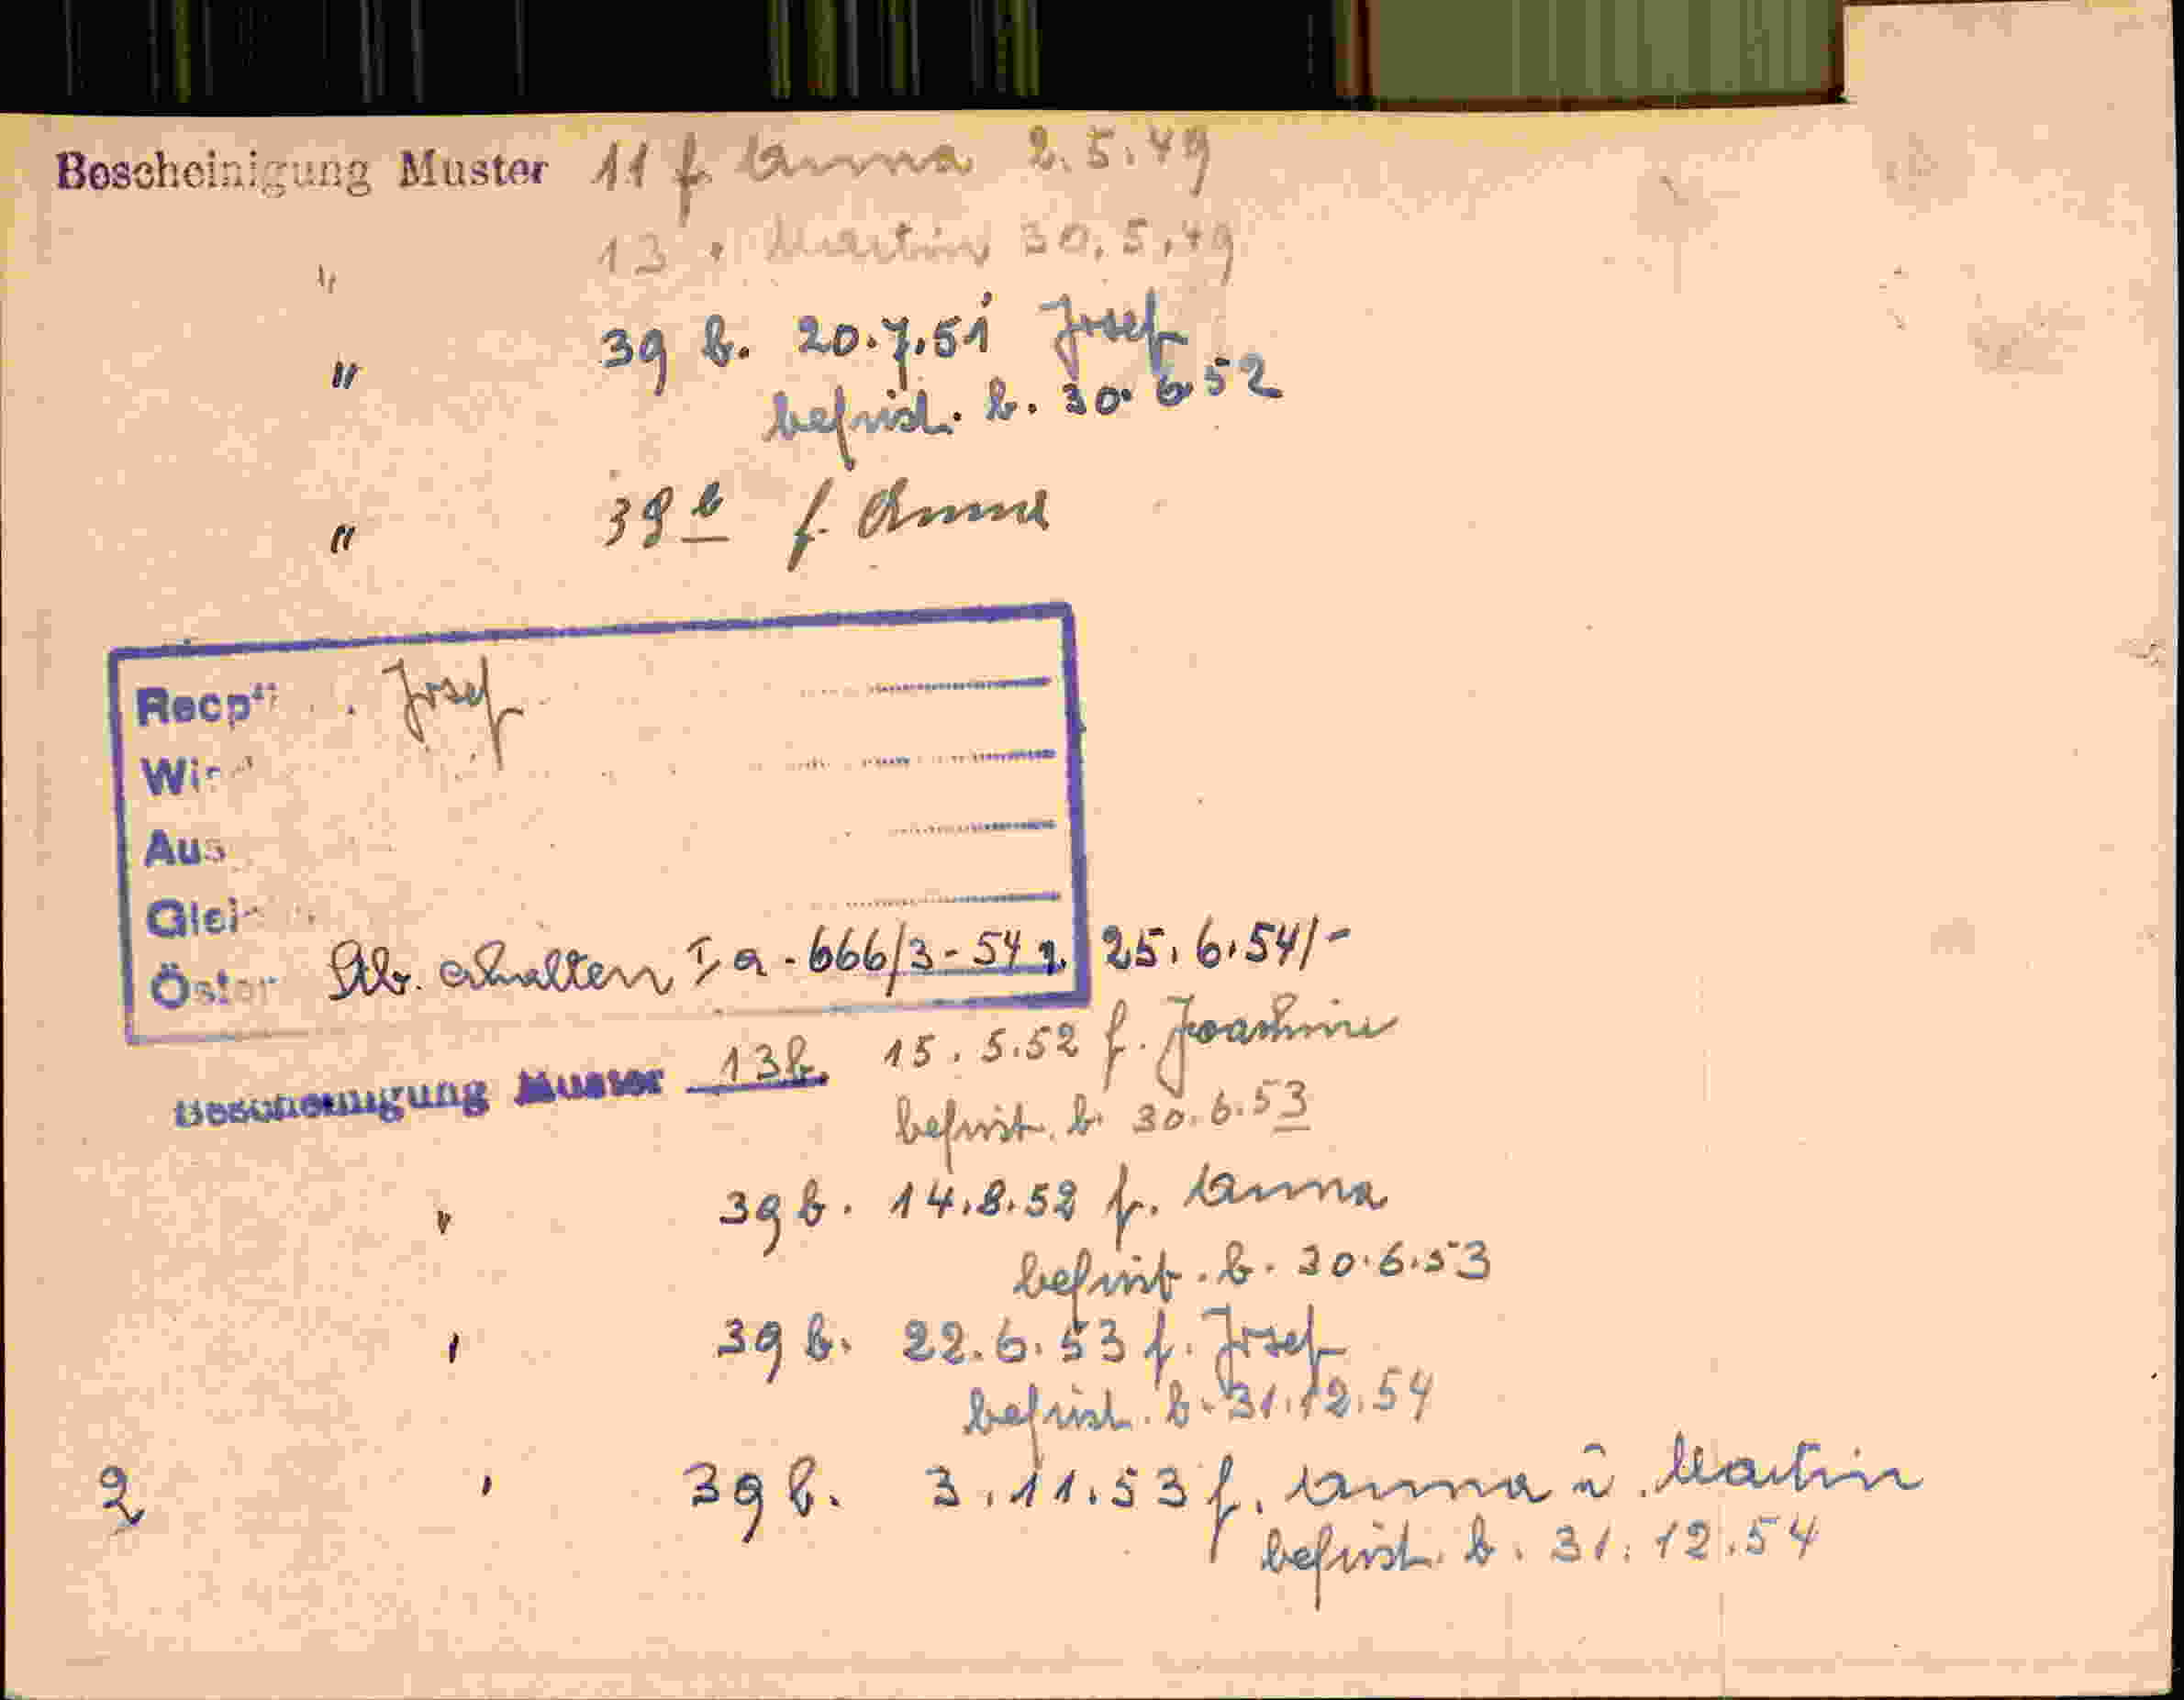 Bescheinigung Muster 11 f. Anna 2.5.49
" 13 " Martin 30.5.49
" 39 b. 20.7.51 Josef
befrist. b. 30.6.52
" 39 b f. Anna
Josef
Wir
Aus
Glei
Öster erhalten I a - 666/3 - 54 25.6.54/-
Bescheinigung Muster 13b. 15.5.52 f. Joachim
befrist. b. 30.6.53
" 39 b. 14.8.52 f. Anna
befrist. b. 30.6.53
" 39 b. 22.6.53 f. Josef
befrist. b. 31.12.54
2 " 39 b. 3.11.53 f. Anna u. Martin
befrist. b. 31.12.54